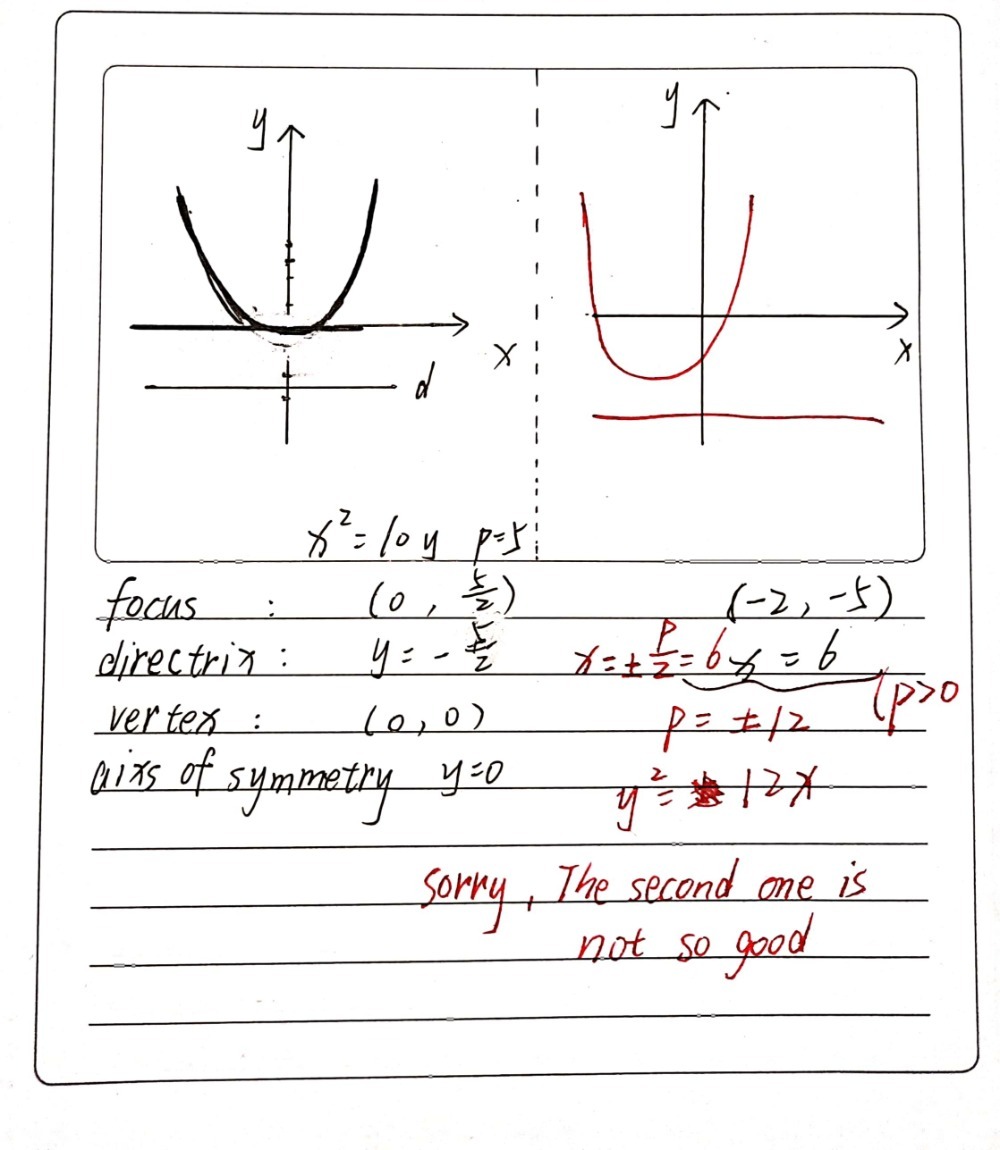 y
y
x
d
x
x² = 10y p=5
focus : (0, 5/2) (-2, -5)
directrix : y = - 5/2 x = ± p/2 = 6 x = 6
(p>0
vertex : (0, 0) p = ±12
aixs of symmetry y=0 y² = 12x
sorry, The second one is
not so good